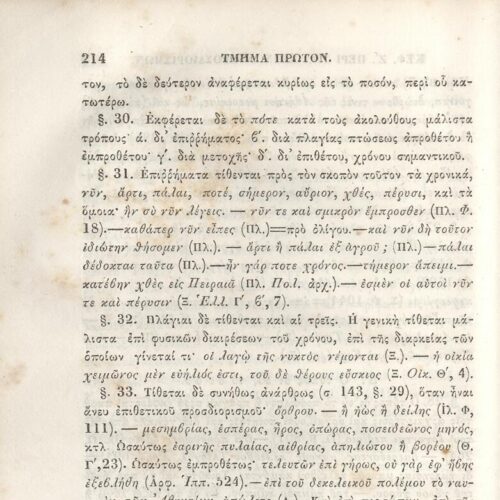 214 ΤΜΗΜΑ ΠΡΩΤΟΝ.
τον, τὸ δὲ δεύτερον ἀναφέρεται κυρίως εἰς τὸ ποσόν, περὶ οὗ κα-
τωτέρω.
§. 30. Ἐκφέρεται δὲ τὸ πότε κατὰ τοὺς ἀκολούθους μάλιστα
τρόπους· ά. δι' ἐπιῤῥήματος· β'. διὰ πλαγίας πτώσεως ἀπροθέτου ἢ
ἐμπροθέτου· γ'. διὰ μετοχῆς· δ'. δι' ἐπιθέτου, χρόνου σημαντικοῦ.
§. 31. Ἐπιῤῥήματα τίθενται πρὸς τὸν σκοπὸν τοῦτον τὰ χρονικά,
νῦν, ἄρτι, πάλαι, ποτέ, σήμερον, αὔριον, χθές, πέρυσι, καὶ τὰ
ὅμοια· ἣν σὺ νῦν λέγεις. — νῦν τε καὶ σμικρὸν ἔμπροσθεν (Πλ. Φ.
18).—καθάπερ νῦν εἶπες (Πλ.)=πρὸ ὀλίγου.—καὶ νῦν δὴ τοῦτον
ἰδιώτην θήσομεν (Πλ.). — ἄρτι ἢ πάλαι ἐξ ἀγροῦ; (Πλ.)—πάλαι
δέδοκται ταῦτα (Πλ.).—ἦν γάρ ποτε χρόνος.—τήμερον ἄπειμι.—
κατέβην χθὲς εἰς Πειραιᾶ (Πλ. Πολ. ἀρχ.).— ἐσμὲν οἱ αὐτοὶ νῦν
τε καὶ πέρυσιν (Ξ. Ἑλλ. Γ', β', 7).
§. 32. Πλάγιαι δὲ τίθενται καὶ αἱ τρεῖς. Ἡ γενικὴ τίθεται μά-
λιστα ἐπὶ φυσικῶν διαιρέσεων τοῦ χρόνου, ἐπὶ τῆς διαρκείας τῶν
ὁποίων γίνεταί τι· οἱ λαγῲ τῆς νυκτὸς νέμονται (Ξ.). — ἡ οἰκία
χειμῶνος μὲν εὐήλιός ἐστι, τοῦ δὲ θέρους εὔσκιος (Ξ. Οἰκ. Θ', 4).
§. 33. Τίθεται δὲ συνήθως ἀνάρθρως (σ. 143, §. 29), ὅταν ἦναι
ἄνευ ἐπιθετικοῦ προσδιορισμοῦ· ὄρθρου. — ἢ ἠὼς ἢ δείλης (Ἰλ. Φ,
111). — μεσημβρίας, ἑσπέρας, ἦρος, ὀπώρας, ποσειδεῶνος μηνός,
κτλ. Ὡσαύτως ἐαρινῆς πυλαίας, αἰθρίας, ἀπηλιώτου ἢ βορέου (Θ.
Γ',23). Ὡσαύτως ἐμπροθέτως· τελευτῶν ἐπὶ γήρως, οὐ γὰρ ἐφ' ἥβης
ἐξεβλήθη (Ἀρφ. Ἱππ. 524).—ἐπὶ τοῦ δεκελεικοῦ πολέμου τὸ ναυ-